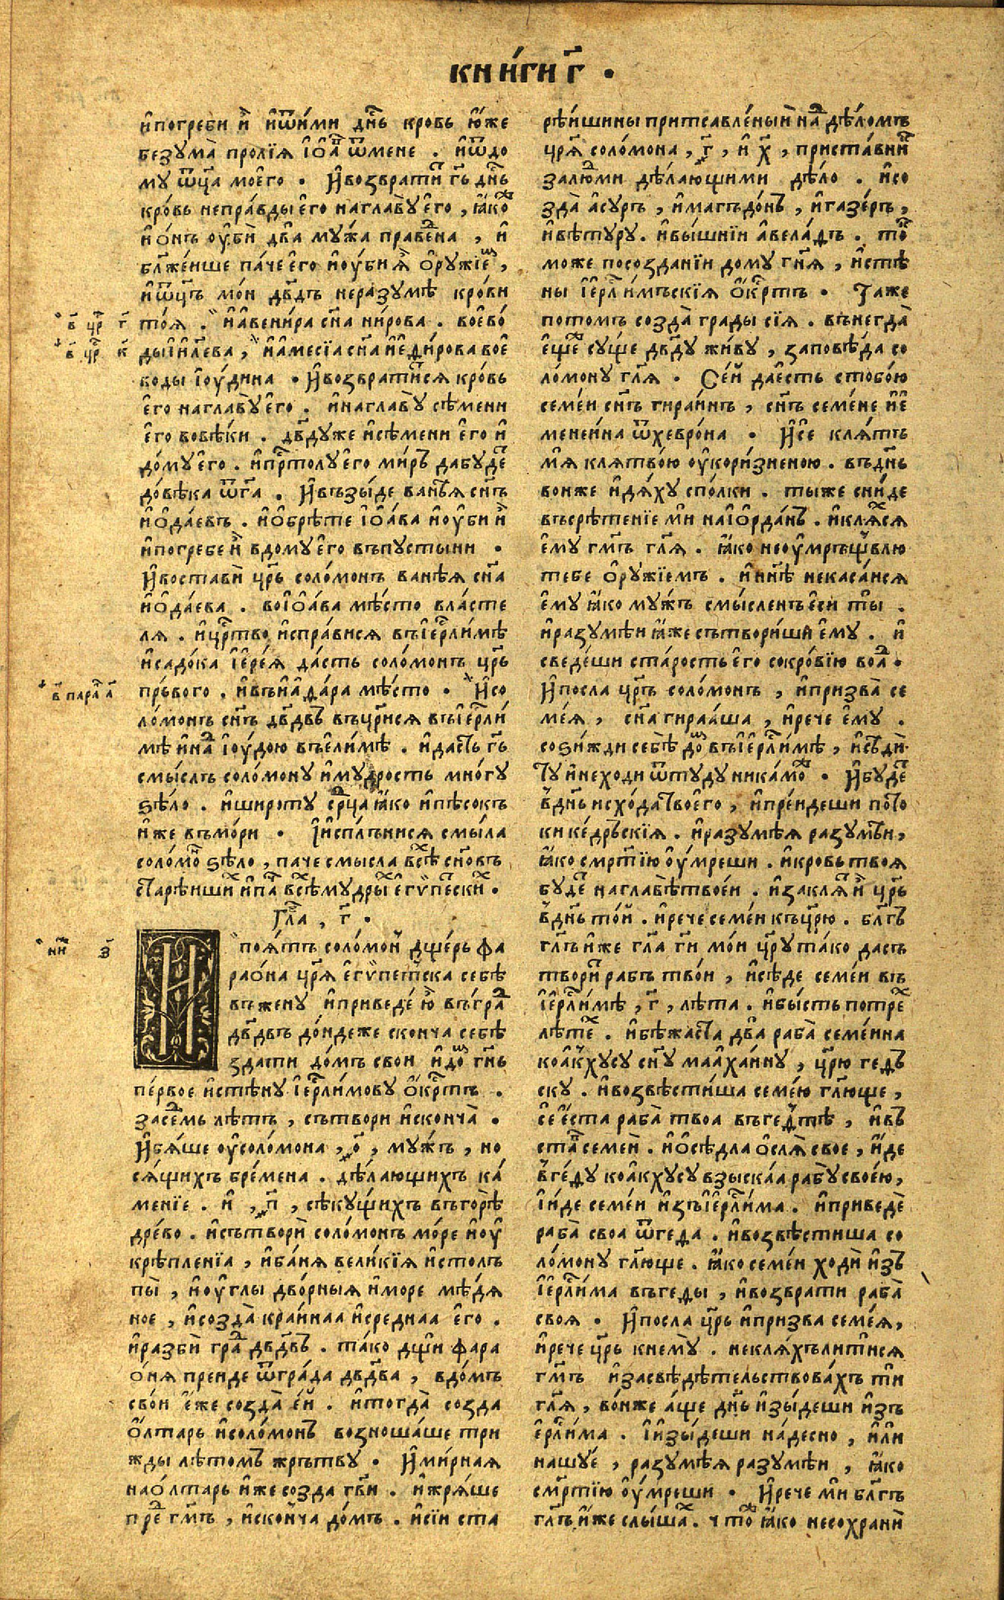 кни́ги г҃ .
и҆погреби и҆̀ и҆ѿи́ми дне́ь кровь ю҆́же
безума̀ пролїѧ і҆оа́в ѿмене . и҆ѿдо
му ѿц҃а мое́го . И҆возврати́ гь дне́ь
кро́вь непра́вды є҆го̀ наглавꙋ є҆го̀ , ꙗ҆́ко
и҆ о́нъ оу҆бѝ два̀ му́жа праведна , и҆
бл҃же́нше па́че є҆го̀ и҆оуби ѧ҆̀ ѻ҆рꙋжїе ,
и҆ѿц҃ъ мо́и дв҃дъ неразумѣ̀ кро́ви
тоѧ̀ . и҆авени́ра сн҃а ни́рова . воево́
ды і҆и҃лева , и҆а҆месі́а сн҃а і҆еди́рова вое
во́ды і҆оу́дина . И҆возврати́сѧ кро́вь
є҆го̀ наглавꙋ є҆го̀ . и҆наглавꙋ сѣ́мени
є҆го̀ вовѣ́ки . дв҃дꙋже и҆сѣ́мени є҆го̀ и҆
до́мꙋ є҆го̀ . и҆прⷭ҇толꙋ є҆го̀ ми́ръ дабꙋде
до́вѣка ѿга . И҆възы́де ване́ѧ сн҃ъ
и҆ода́евъ . и҆ѡбрѣ́те і҆оа́ва и҆оу҆би и҆̀
и҆погребе и҆̀ вдомꙋ є҆го̀ въпꙋсты́ни .
И҆воста́ви цр҃ь соло́монъ ване́ѧ сн҃а
и҆ода́ева . воі҆оа́ва мѣ́сто вла́сте
лѧ . и҆црⷭ҇тво и҆спра́висѧ въі҆ерⷭ҇ли́мѣ
и҆садо́ка і҆ере́ѧ да́сть соло́монъ цр҃ь
пръ́вого . и҆въи҆ада́ра мѣ́сто . И҆со
ло́монъ сн҃ъ дв҃двъ въцр҃исѧ въі҆ерⷭ҇ли́
мѣ и҆над і҆оу́дою въе҆ли́мѣ . и҆да́сть гь
смы́слъ соло́монꙋ и҆мꙋ́дрость мно́гꙋ
ѕѣло̀ . и҆широтꙋ срⷣца ꙗ҆́ко и҆пѣсо́къ
и҆́же въмо́ри . І҆и҆спль́нисѧ смы́сла
соло́мо ѕѣло̀ , па́че смы́сла всѣ сн҃овъ
старѣ́иши и҆па все҆мꙋдры е҆гѵ́пески .
Гла , г҃ .
И҆поѧ́тъ соло́мон дще́рь фа
рао́на цр҃ѧ е҆гѵ́петска себѣ̀
въжену̀ и҆приведе́ ю҆̀ въгра
дв҃двъ до́ндеже сконча себѣ̀
зда́ти до́мъ сво́и и҆до гн҃ь
пе́рвое и҆стѣ́нꙋ і҆ерⷭ҇ли́мовꙋ ѻ҆́крⷭ҇тъ .
засе́дмь лѣ́тъ , сътвори и҆сконча̀ .
И҆бѧ́ше оу҆соло́мона , о҃ , мꙋ́жъ , но
сѧ́щихъ бре́мена . дѣ́лающихъ ка́
менїе . и҆ , п҃ , сѣкꙋ́щихъ въгорѣ̀
дре́во . и҆сътвори̑ соло́монъ мо́ре и҆оу҆
крѣпле́нїа , и҆ба́нѧ вели́кїѧ и҆столъ
пы̀ , и҆оу҆глы дво́рныѧ и҆мо́ре мѣ́дѧ
ное , и҆созда̀ кра́инаа и҆сре́днаа є҆го̀ .
и҆разбѝ гра дв҃двъ . та́ко дщи фара
о́нѧ преиде ѿгра́да дв҃два , вдо́мъ
сво́и е҆́же созда̀ е҆́й . и҆тогда̀ созда
ѻ҆лта́рь и҆соло́монъ возноша́ше три
жды лѣ́томъ жръ́твꙋ . И҆ми́рнаѧ
наѻлта́рь и҆́же созда гв҃и . и҆жрѧ́ше
пре гм҃ъ , и҆сконча до́мъ . и҆сі́и ста
рѣ́ишины приставле́ный над дѣ́ломъ
цр҃ѧ соло́мона , г҃ , и҆ х҃ , приста́вни
залю́дми дѣ́лающими дѣ́ло . и҆со
зда̀ а҆сꙋръ , и҆магъдо́нъ , и҆газе́ръ ,
и҆вѣтꙋрꙋ . и҆вы́шнїи а҆велаⷣтъ . то
може посозда́нїи до́мꙋ гн҃ѧ , и҆стѣ
ны і҆ерⷭ҇ли́мъскїѧ ѻ҆́крⷭ҇тъ . Таже
пото́мъ созда̀ гра́ды сїѧ̀ . въне́гда̀
е҆щѐ сꙋ́ще дв҃дꙋ жи́вꙋ , заповѣ́да со
ло́монꙋ гл҃ѧ . Се́й да̀е́сть стобо́ю
семе́и сн҃ъ гира́инъ , сн҃ъ семе́не и҆е
мене́ина ѿхевро́на . И҆се клѧ́тъ
мѧ клѧ́твою оу҆кори́зненою . въдн҃ь
во́нже и҆дѧ́хꙋ спо́лки . ты́же сни́де
въсрѣ́тенїе мѝ наі҆ѻрда́нъ . и҆клѧ́сѧ
е҆мꙋ гм҃ъ гл҃ѧ . ꙗ҆́ко неоу҆мръщвлю
тебе ѻ҆рꙋ́жїемъ . и҆нн҃ѣ некаса́исѧ
е҆мꙋ ꙗ҆́ко мꙋ́жъ смы́сленъ е҆си ты̀ .
и҆разꙋмѣ́и ꙗ҆́же сътвориши е҆мꙋ . и҆
сведе́ши ста́рость е҆го̀ сокро́вїю воа .
И҆посла цр҃ъ соло́монъ , и҆призва̀ се
ме́ѧ , сн҃а гираа́ша , и҆рече е҆мꙋ .
сози́жди себѣ̀ до въі҆ерⷭ҇ли́мѣ , и҆сѣдѝ
тꙋ и҆неходи ѿтꙋ́дꙋ никамо . И҆бꙋде
вдн҃ь и҆схо́да твоего , и҆пре́идеши пото
ки ке́дръскїѧ . и҆разꙋмѣ́ѧ разꙋмѣ́и ,
ꙗ҆́ко смр҃тїю оу҆́мреши . и҆кро́вь твоѧ
бꙋде наглавѣ̀твое́и . и҆заклѧ и҆̀ цр҃ь
вдн҃ь то́й . и҆рече семе́и къцр҃ю . бл҃гъ
гл҃ъ и҆́же гл҃а ги мо́и цр҃ꙋ та́ко да́съ
твори́ ра́бъ тво́и , и҆сѣ́де семе́и въ
і҆ерⷭ҇ли́мѣ , г҃ , лѣ́та . и҆бы́сть потре
лѣте . и҆бѣжаста два̀ раба̀ семе́ина
коа́кхꙋсꙋ сн҃ꙋ маахаинꙋ , цр҃ю геⷣтъ
скꙋ . и҆возвѣсти́ша семе́ю гл҃юще ,
се е҆́ста раба̀ твоа въгеⷣтѣ , и҆въ
ста семе́и . и҆ѻсѣдла ѻ҆слѧ̀ свое , и҆́де
вге́дꙋ коа́кхꙋсꙋ взыска́а рабꙋ свое́ю ,
і҆и́де семе́и и҆зъі҆ерⷭ҇ли́ма . и҆приведѐ
раба̀ своа ѿге́да . и҆возвѣ́стиша со
ло́монꙋ гл҃юще . ꙗ҆́ко семе́и ходи и҆зъ
і҆ерⷭ҇ли́ма въге́ды , и҆возврати раба̀
своѧ . И҆посла цр҃ь и҆призва семе́ѧ ,
и҆рече цр҃ь кнемꙋ̀ . неклѧ́хълитисѧ
гм҃ъ и҆засвѣдѣ́тельствова́хъ ти
гл҃ѧ , во́нже а́ще дн҃ь и҆зы́деши и҆зъ
е҆рⷭ҇ли́ма . І҆и҆зы́деши на́десно , и҆́ли
нашꙋ́е , разꙋмѣ́ѧ разꙋмѣ́и , ꙗ҆́ко
смр҃тїю оу҆́мреши . И҆рече ми бл҃гъ
гл҃ъ и҆́же слы́ша . что ꙗ҆́ко несохрани
в҃ цр҃ г҃
в҃ цр҃ к҃
в҃ парал а҃
ни҃ ѕ҃